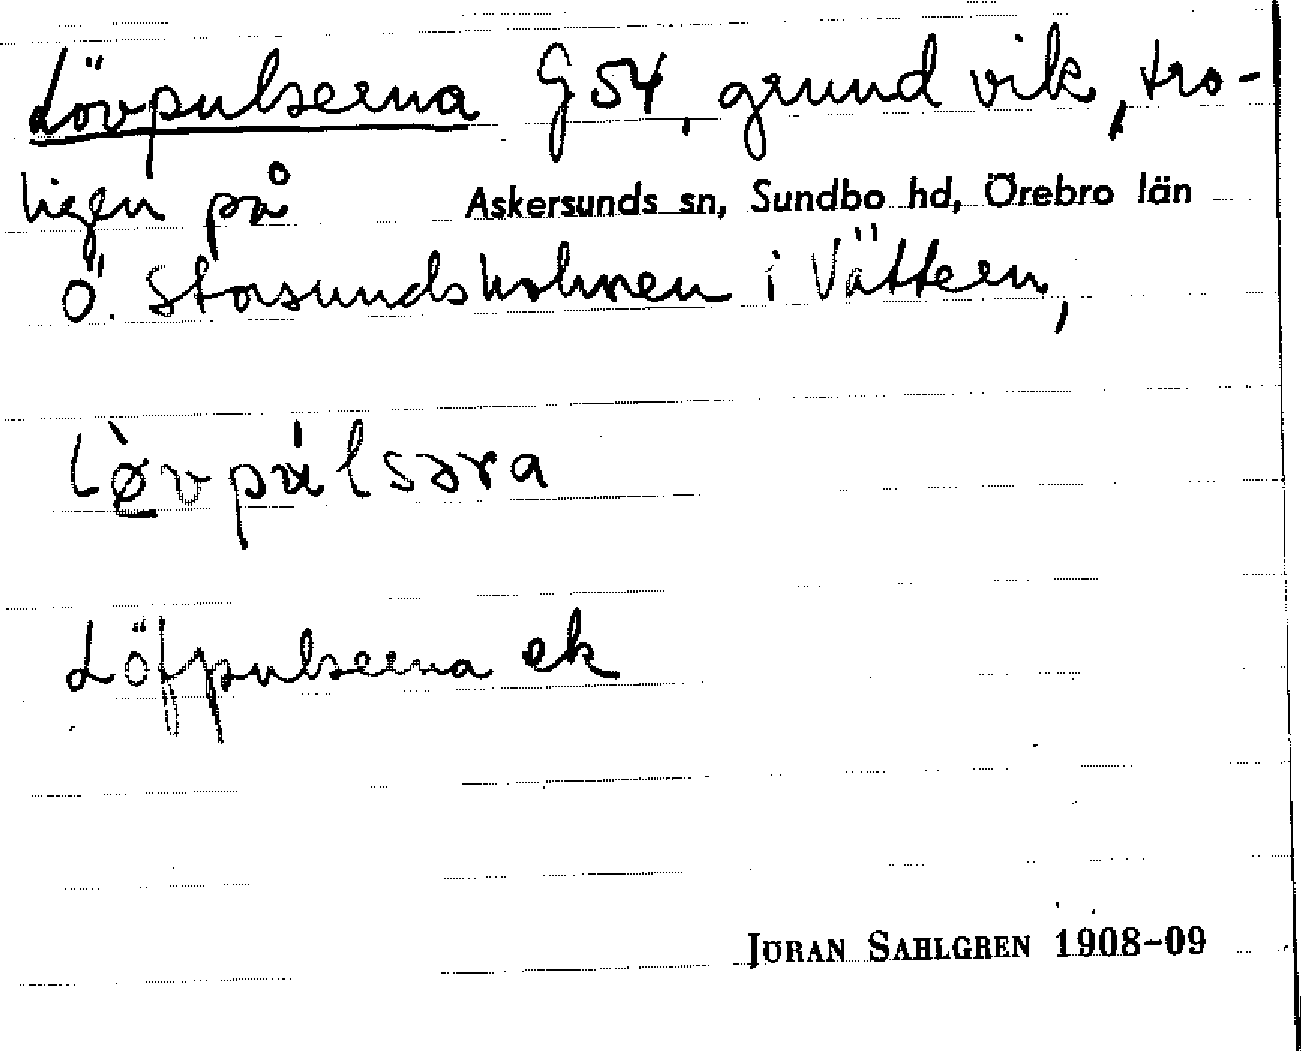 Lövpulserna G 54, grund vik, tro-
ligen på Askersunds sn, Sundbo hd, Örebro län
Ö. Storsundsholmen i Vättern,
lø̀vpúlsəra
Löfpulserna ek
JÖRAN SAHLGREN 1908-09